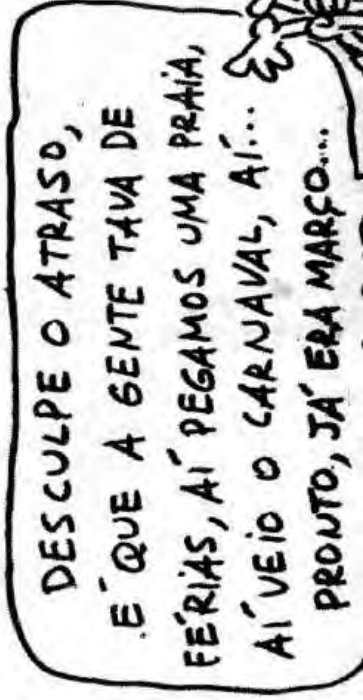 DESCULPE O ATRASO,
É QUE A GENTE TAVA DE
FÉRIAS, AÍ PEGAMOS UMA PRAIA,
AÍ VEIO O CARNAVAL, AÍ...
PRONTO, JÁ ERA MARÇO...